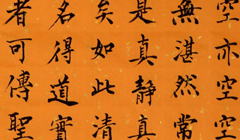 空亦空空
無湛然常
是真静真
矣如此清
名得道實
者可傳聖